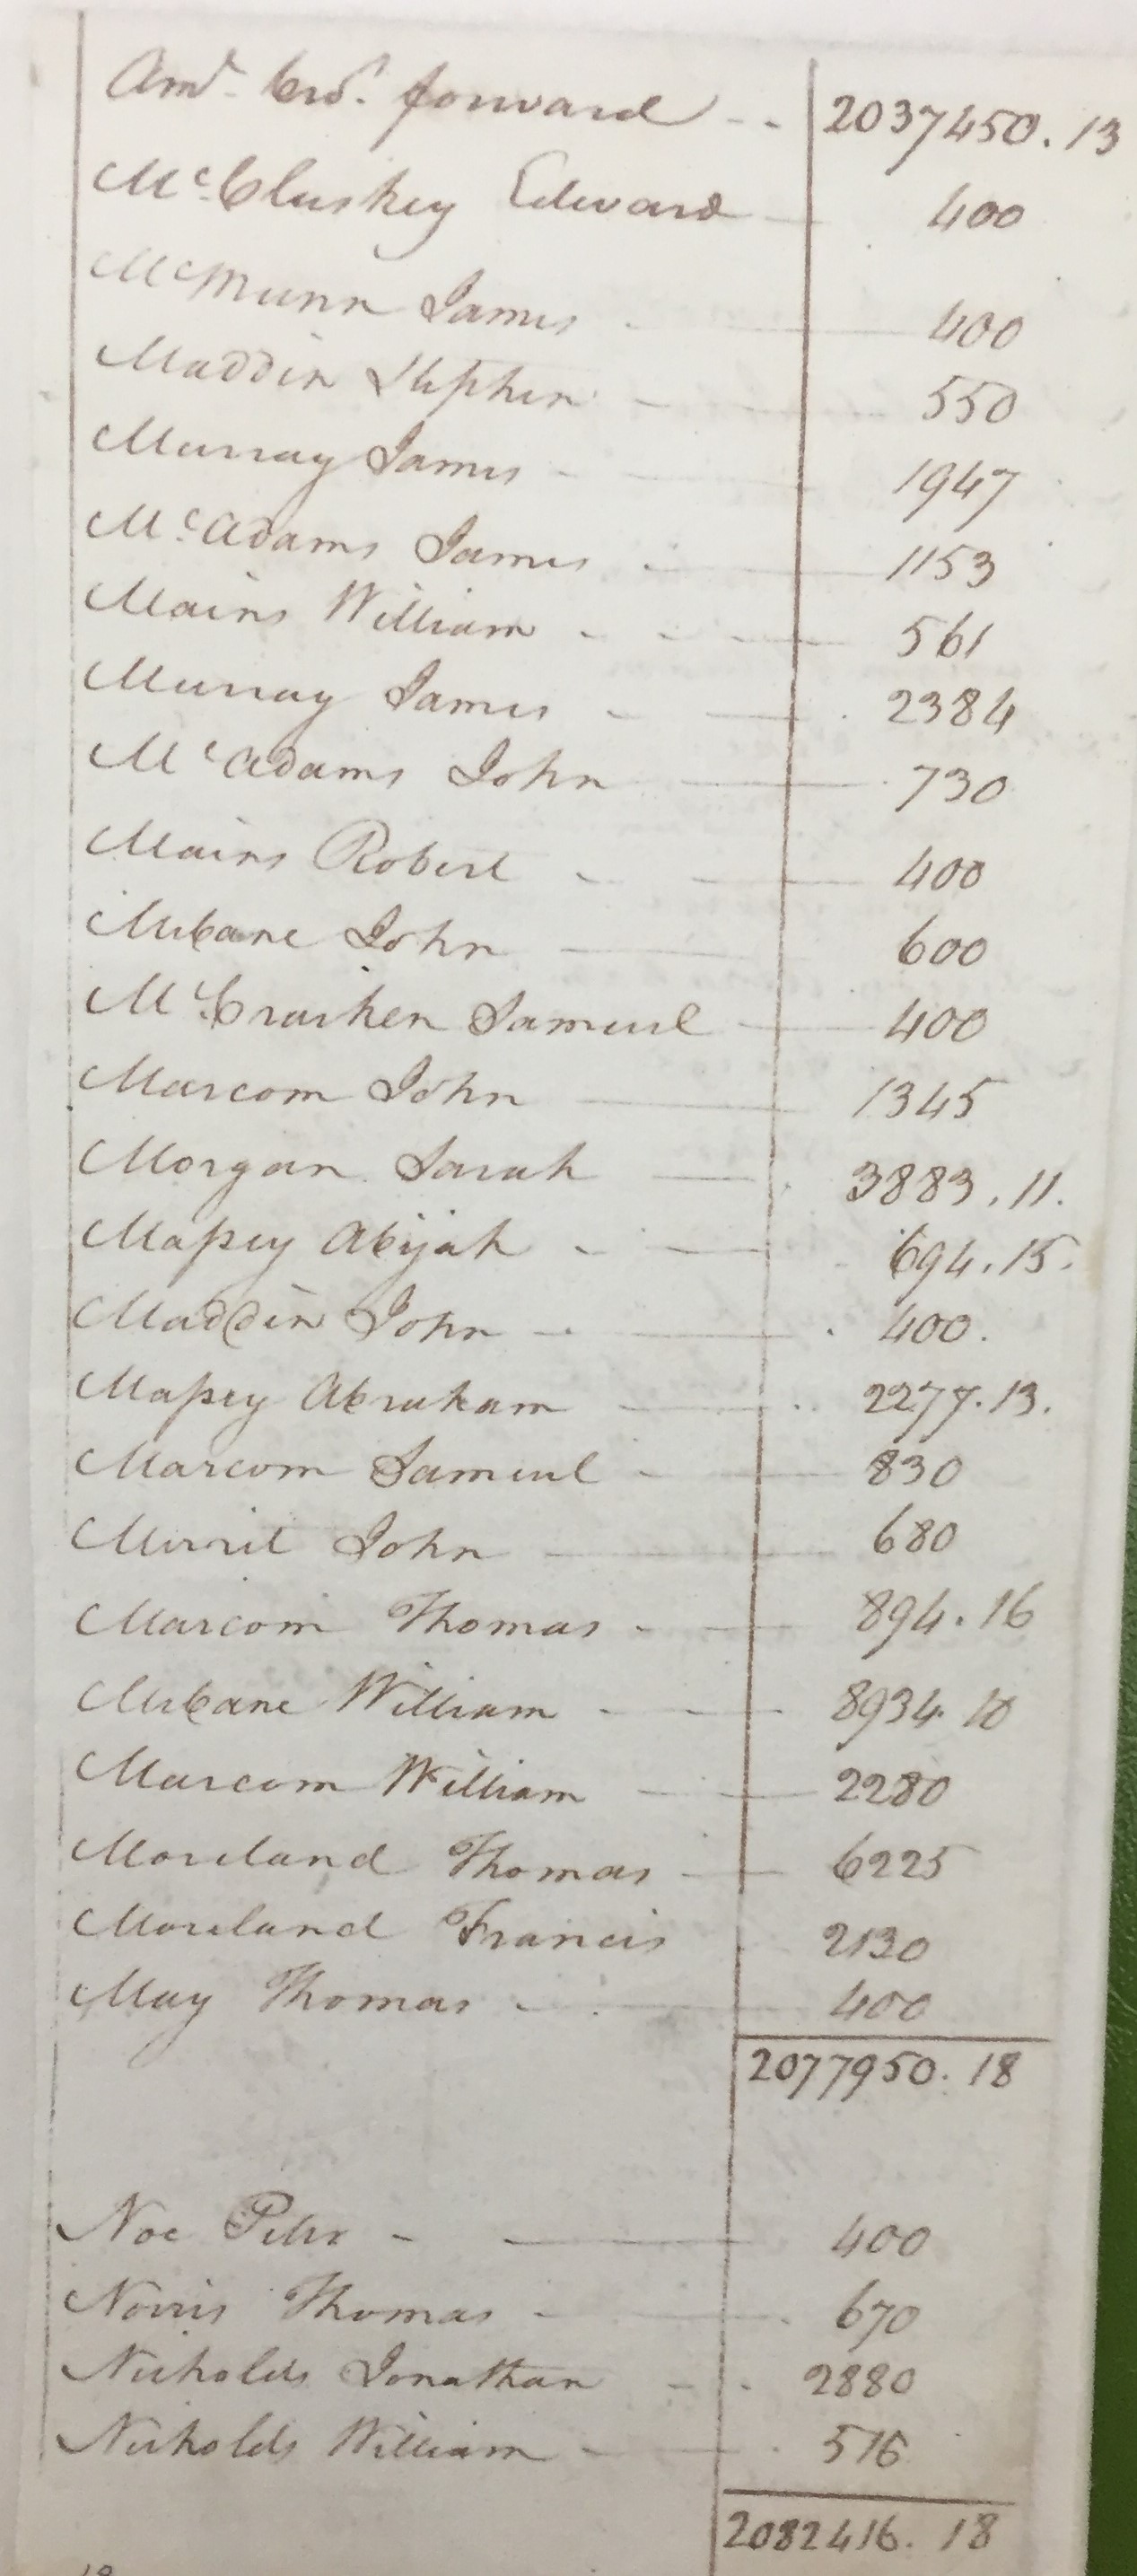 Amt. bro.t forward -- 2037450.13
McCluskey Edward 400
McMunn James 400
Maddin Stephen 550
Murray James 1947
McAdams James 1153
Mains William 561
Murray James 2384
McAdams John 730
Mains Robert 400
Mebane John 600
McCracken Samuel 400
Marcom John 1345
Morgan Sarah 3883.11.
Massey Abijah 694.15.
Maddin John 400.
Massey Abraham 2277.13.
Marcom Samuel 830
Merrit John 680
Marcom Thomas 894.16
Mebane William 8934.10
Marcom William 2280
Moreland Thomas 6225
Moreland Francis 2130
May Thomas 400
2077950.18
Noe Peter 400
Norris Thomas 670
Nicholds Jonathan 2880
Nicholds William 516
2082416.18